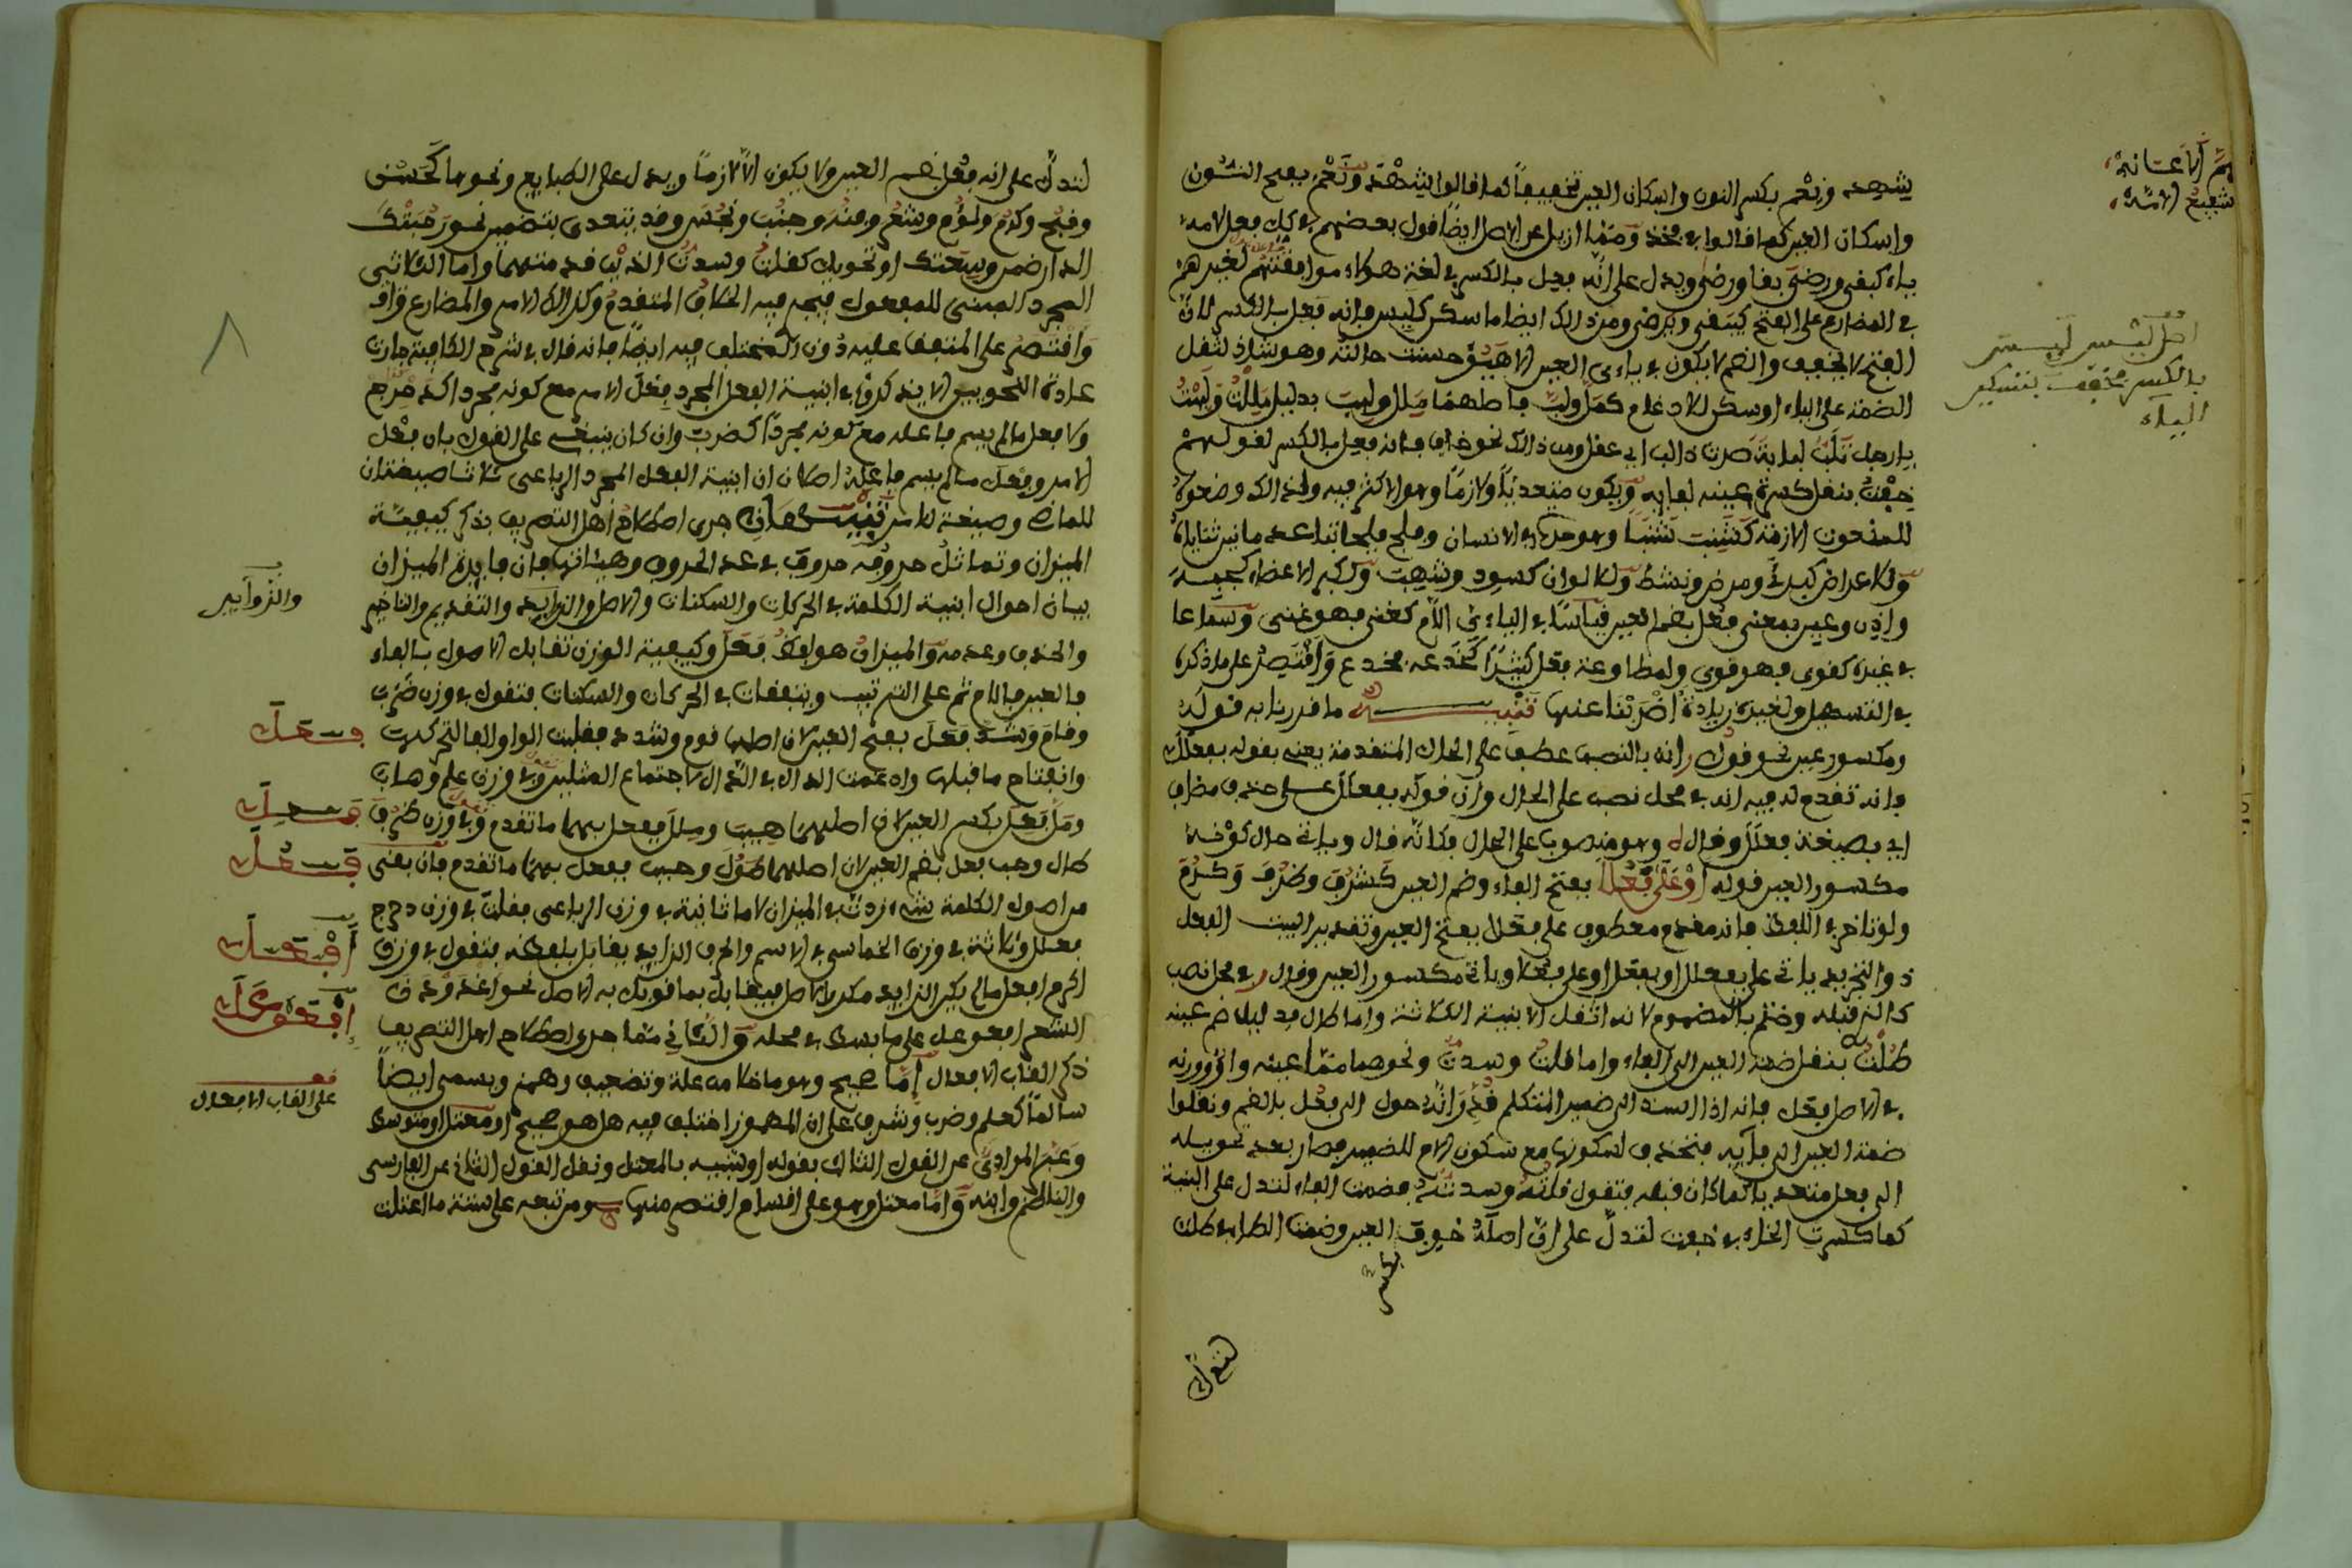 يشهد ونعم بكسر النون واسكان العين تخفيفا كما قالوا شهد ونعم بفتح النون
واسكان العين كما قالوا في فخذ ومما ازيل عن الاصل ايضا قول بعضهم في كل فعل لامه
ياء كبقى ورضى بقا ورضى ويدل على انه فعل بالكسر في لغة هؤلاء موافقتهم لغيرهم
في المضارع على الفتح كيبقى ويرضى ومن ذالك ايضا ما سكن كليس فانه فعل بالكسر لان
الفتح لا يخفف والضم لا يكون في يائي العين الا هيؤ حسنت حالته وهو شاذ لثقل
الضمة على الياء او سكن للادغام كمل ولب فاصلهما ملل ولبب بدليل مللت ولببت
يا رجل تلب لبابة صرت ذا لب اي عقل ومن ذالك نحو خاف فانه فعل بالكسر لقولهم
خفت بنقل كسرة عينه لفائه ويكون متعديا ولازما وهو الاكثر فيه ولذالك وضعوه
للنعوت الازمة كشنبت شنبا وهو حدة في الاسنان وفلج فلجا تباعد ما بين ثناياه
وللاعراض كبرئ ومرض ونشط وللالوان كسود وشهب ولكبر الاعضاء كجبه
واذن وعين بمعنى فعل بضم العين قياسا في الياءي اللام كغنى فهو غني وسماعا
في غيره كقوى فهو قوي ولمطاوعة فعل كثيرا كخدعه فخدع واقتصر على ما ذكره
في التسهيل ولغيره زيادة اضربنا عنها تنبيه ما قدرنا به قوله
ومكسور عين نحو قولك انه بالنصب عطف على الحال المتقدمة يعني بقوله بفعلل
فانه تقدم لي فيه انه في محل نصب على الحال وان قوله بفعلل على حذف مضاف
اي بصيغة فعلل وقال وهو منصوب على الحال فكانه قال وياتي حال كونه
مكسور العين قوله او على فعلا بفتح الفاء وضم العين كشرف وظرف وكرم
ولو تاخر في اللفظ فانه مقدم معطوف على فعلا بفتح العين وتقدير البيت الفعل
ذو التجريد ياتي على فعلل او بفعل او على فعلا وياتي مكسور العين وقال في محل نصب
كالذي قبله وختم بالمضموم لانه اثقل الابنية الثلاثة واما طال فدليل ضم عينه
طلت بنقل ضمة العين الى الفاء واما قلت وسدت ونحوهما مما عينه واو ووزنه
في الاصل فعل فانه اذا اسند الى ضمير المتكلم حول الى فعل بالضم ونقلوا
ضمة العين الى فائه فتحذف لسكونها مع سكون الام للضمير فصار بعد تحويله
الى فعل متعديا كما كان قبله فتقول قلته وسدته فضمت الفاء لتدل على البنية
كما كسرت الخاء في خفت لتدل على ان اصله خوف العين وضمت الطاء في طلت
اصل ليس ليس
بالكسر فخفف بتسكين
الياء
لتدل على انه فعل بضم العين ولا يكون الا لازما ويدل على الطبايع ونحوها كحسن
وقبح وكرم ولؤم وشعر وفقه وجنب ونجس وقد يتعدى بتضمين نحو رحبتك
الدار ضمن وسعتك او تحويل كقلت وسدت الذي قد منهما واما الثلاثي
المجرد المبني للمفعول فيجي فيه الخلاف المتقدم وكذالك الامر والمضارع
واقتصر على المتفق عليه دون المختلف فيه ايضا فانه قال في شرح الكافية جرت
عادة النحويين الا يذكروا في ابنية الفعل المجرد فعل الامر مع كونه مجردا كدحرج
ولا فعل ما لم يسم فاعله مع كونه مجردا كضرب وان كان ينبغي على القول بان فعل
الامر وفعل ما لم يسم فاعله اصلان ان ابنية الفعل المجرد الرباعي ثلاثا صيغتان
للماض وصيغة للامر تنبيهان جرى اصطلاح اهل التصريف بذكر كيفية
الميزان وتماثل حروفه حروف في عدد الحروف وهيئاتها فان فايدة الميزان
بيان احوال ابنية الكلمة في الحركات والسكنات والاصل والزايد والتقديم والتاخير
والحذف وعدمه والميزان هو لفظ فعل وكيفية الوزن تقابل الاصول بالفاء
فالعين فاللام ثم على الترتيب ويتفقان في الحركات والسكنات فتقول في وزن ضرب
وقام وشد فعل بفتح العين لان اصلها قوم وشدد فقلبت الواو الفا لتحركها
وانفتاح ما قبلها وادغمت الدال في الدال لاجتماع المثلين وفي وزن علم وهاب
ومل فعل بكسر العين لان اصلهما هيب وملل ففعل بهما ما تقدم وفي وزن ظرف
طال وحب فعل بضم العين لان اصلهما طول وحبب ففعل بهما ما تقدم فان بقى
من اصول الكلمة شيء زدت في الميزان لاما ثانية في وزن الرباعي فقلت في وزن دحرج
فعلل وثالثة في وزن الخماسي في الاسم والحرف الزايد يقابل بلفظه فتقول في وزن
اكرم افعل ما لم يكن الزايد مكررا لاصل فيقابل بما قوبل به الاصل نحو اغدودن
الشعر افعوعل على ما بسط في محله والثاني مما جرى اصطلاح اهل التصريف
ذكر القاب الافعال اما صحيح وهو ما خلا من علة وتضعيف وهمز ويسمى ايضا
سالما كعلم وضرب وشرف على ان المهموز اختلف فيه هل هو صحيح او معتل او متوسط
وعبر المرادي عن القول الثالث بقوله او شبيه بالمعتل ونقل القول الثاني عن الفارسي
والناظم وابنه واما معتل وهو على اقسام اقتصر منها ومن تبعه على ستة ما اعتلت
والزوايد
فعل
فعل
فعل
افعل
افعوعل
على القاب الافعال